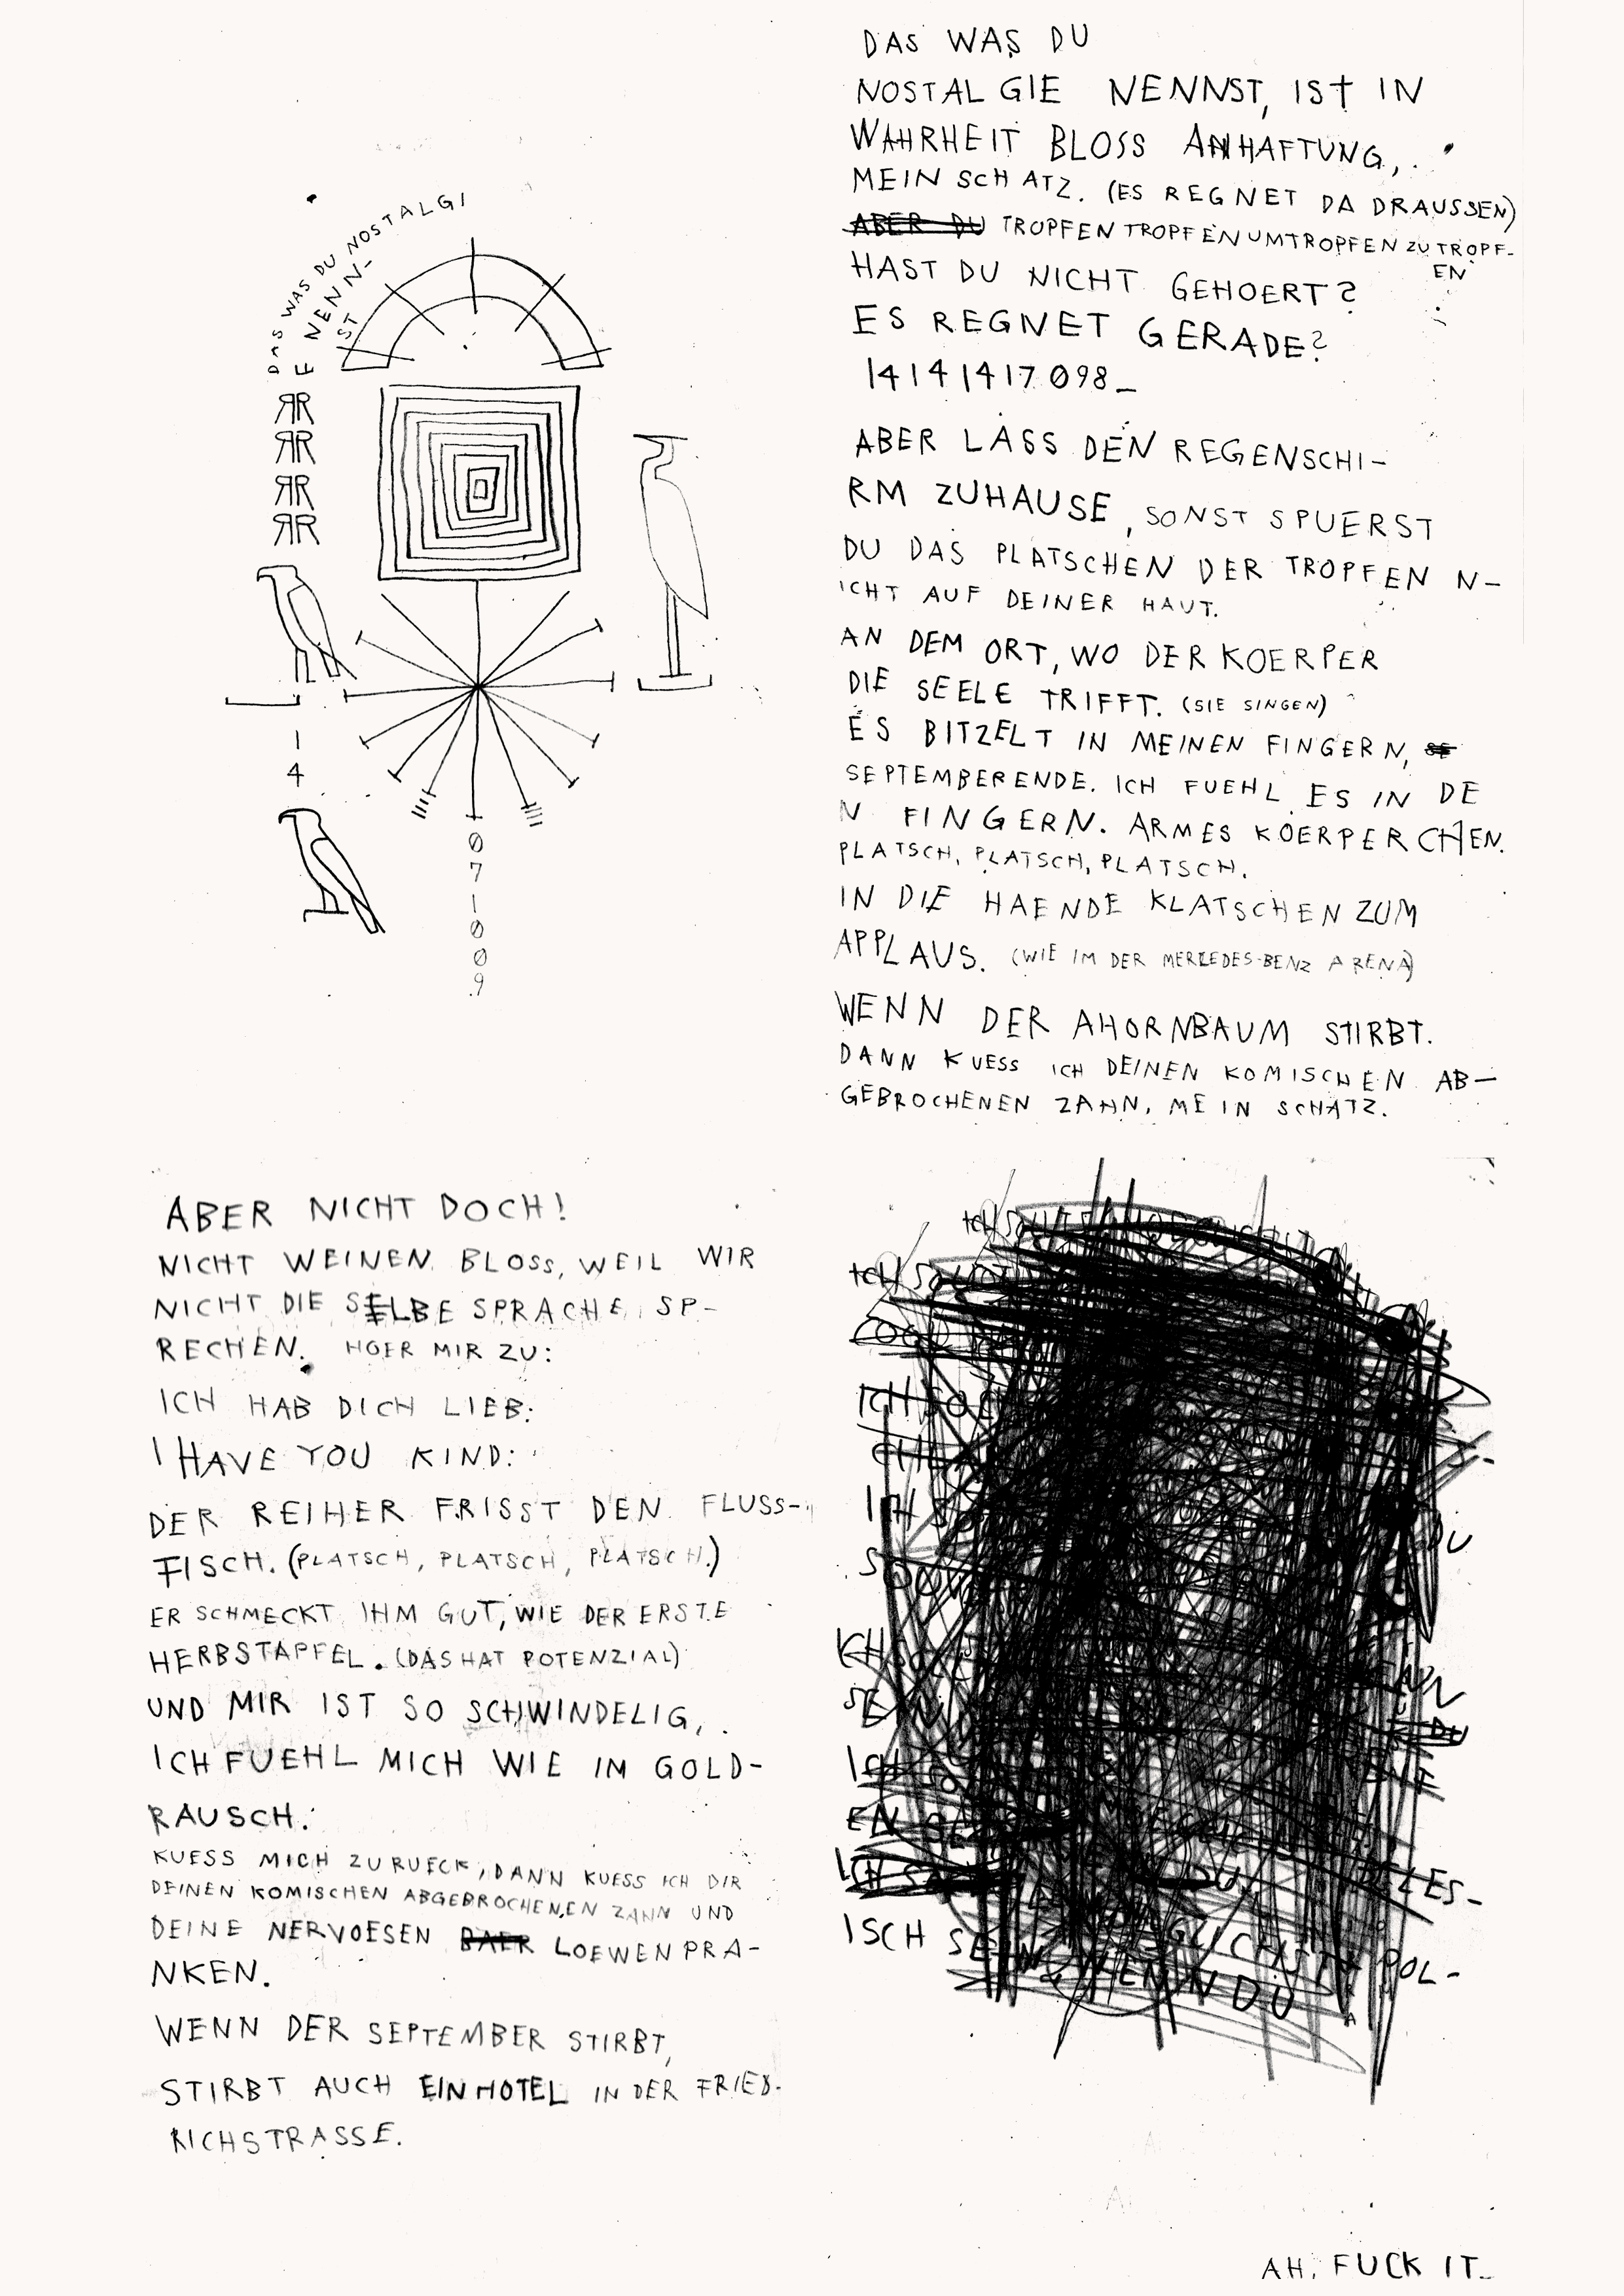 DAS WAS DU NOSTALGI
E NENN-
ST
RR
RR
RR
RR
1
4
0
7
1
0
0
9
DAS WAS DU
NOSTALGIE NENNST, IST IN
WAHRHEIT BLOSS ANHAFTUNG,.
MEIN SCHATZ. (ES REGNET DA DRAUSSEN)
ABER DU TROPFEN TROPFEN UMTROPFEN ZU TROPF-
EN
HAST DU NICHT GEHOERT?
ES REGNET GERADE?
14141417098_
ABER LASS DEN REGENSCHI-
RM ZUHAUSE, SONST SPUERST
DU DAS PLATSCHEN DER TROPFEN N-
ICHT AUF DEINER HAUT.
AN DEM ORT, WO DER KOERPER
DIE SEELE TRIFFT. (SIE SINGEN)
ES BITZELT IN MEINEN FINGERN, SE
SEPTEMBERENDE. ICH FUEHL ES IN DE
N FINGERN. ARMES KOERPERCHEN.
PLATSCH, PLATSCH, PLATSCH.
IN DIE HAENDE KLATSCHEN ZUM
APPLAUS. (WIE IM DER MERCEDES-BENZ ARENA)
WENN DER AHORNBAUM STIRBT.
DANN KUESS ICH DEINEN KOMISCHEN AB-
GEBROCHENEN ZAHN, MEIN SCHATZ.
ABER NICHT DOCH!
NICHT WEINEN BLOSS, WEIL WIR
NICHT DIE SELBE SPRACHE SP-
RECHEN. HOER MIR ZU:
ICH HAB DICH LIEB:
I HAVE YOU KIND:
DER REIHER FRISST DEN FLUSS-
FISCH. (PLATSCH, PLATSCH, PLATSCH.)
ER SCHMECKT IHM GUT, WIE DER ERSTE
HERBSTAPFEL. (DAS HAT POTENZIAL)
UND MIR IST SO SCHWINDELIG,.
ICH FUEHL MICH WIE IM GOLD-
RAUSCH.
KUESS MICH ZURUECK, DANN KUESS ICH DIR
DEINEN KOMISCHEN ABGEBROCHENEN ZAHN UND
DEINE NERVOESEN BAER LOEWENPRA-
NKEN.
WENN DER SEPTEMBER STIRBT,
STIRBT AUCH EIN HOTEL IN DER FRIED-
RICHSTRASSE.
ICH
ICH
ICH
DU
ICH
SEIN
ICH
EN
ICH DU
ISCH SEIN POL-
WENN DU
AH, FUCK IT_